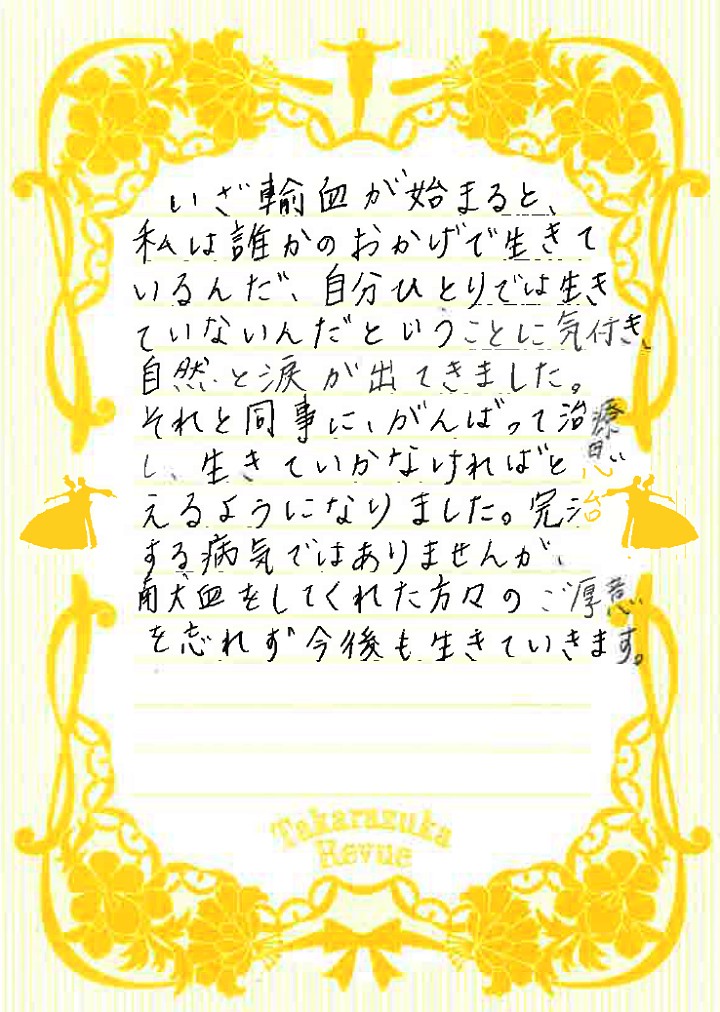 いざ輸血が始まると、
私は誰かのおかげで生きて
いるんだ、自分ひとりでは生き
ていないんだということに気付き、
自然と涙が出てきました。
それと同事に、がんばって治療
し、生きていかなければと思
えるようになりました。完治
する病気ではありませんが、
献血をしてくれた方々のご厚意
を忘れず今後も生きていきます。
Takarazuka
Revue